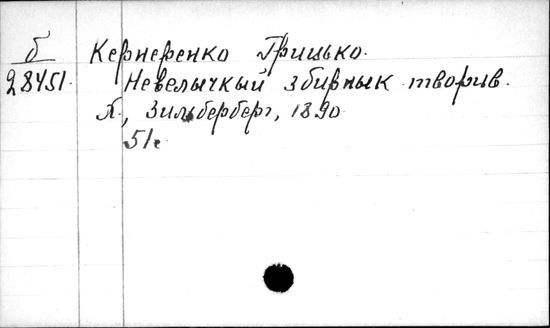 б
28451.
Кернеренко Грицько.
Невелычкый збирнык творив.
Х., Зильберберг, 1890
51с